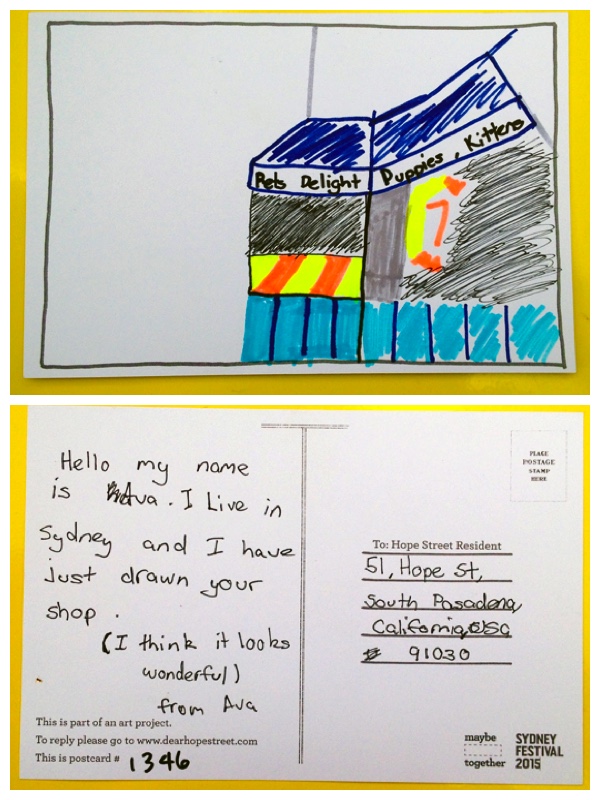 Pets Delight
Puppies, Kittens
Hello my name
is Ava. I Live in
Sydney and I have
just drawn your
shop.
(I think it looks
wonderful)
from Ava
This is part of an art project.
To reply please go to www.dearhopestreet.com
This is postcard # 1346
PLACE
POSTAGE
STAMP
HERE
To: Hope Street Resident
51, Hope St,
South Pasadena,
California, USA
91030
maybe
together
SYDNEY
FESTIVAL
2015